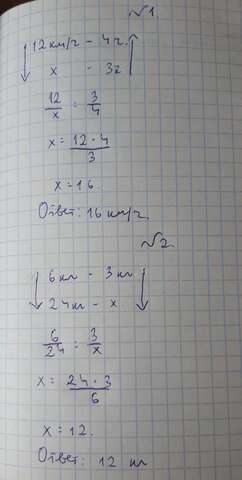 №1.
12 км/ч - 4ч.
x - 3ч
12/x = 3/4
x = 12·4/3
x = 16
Ответ: 16 км/ч.
№2.
6 кг - 3 кг
24 кг - x
6/24 = 3/x
x = 24·3/6
x = 12.
Ответ: 12 кг